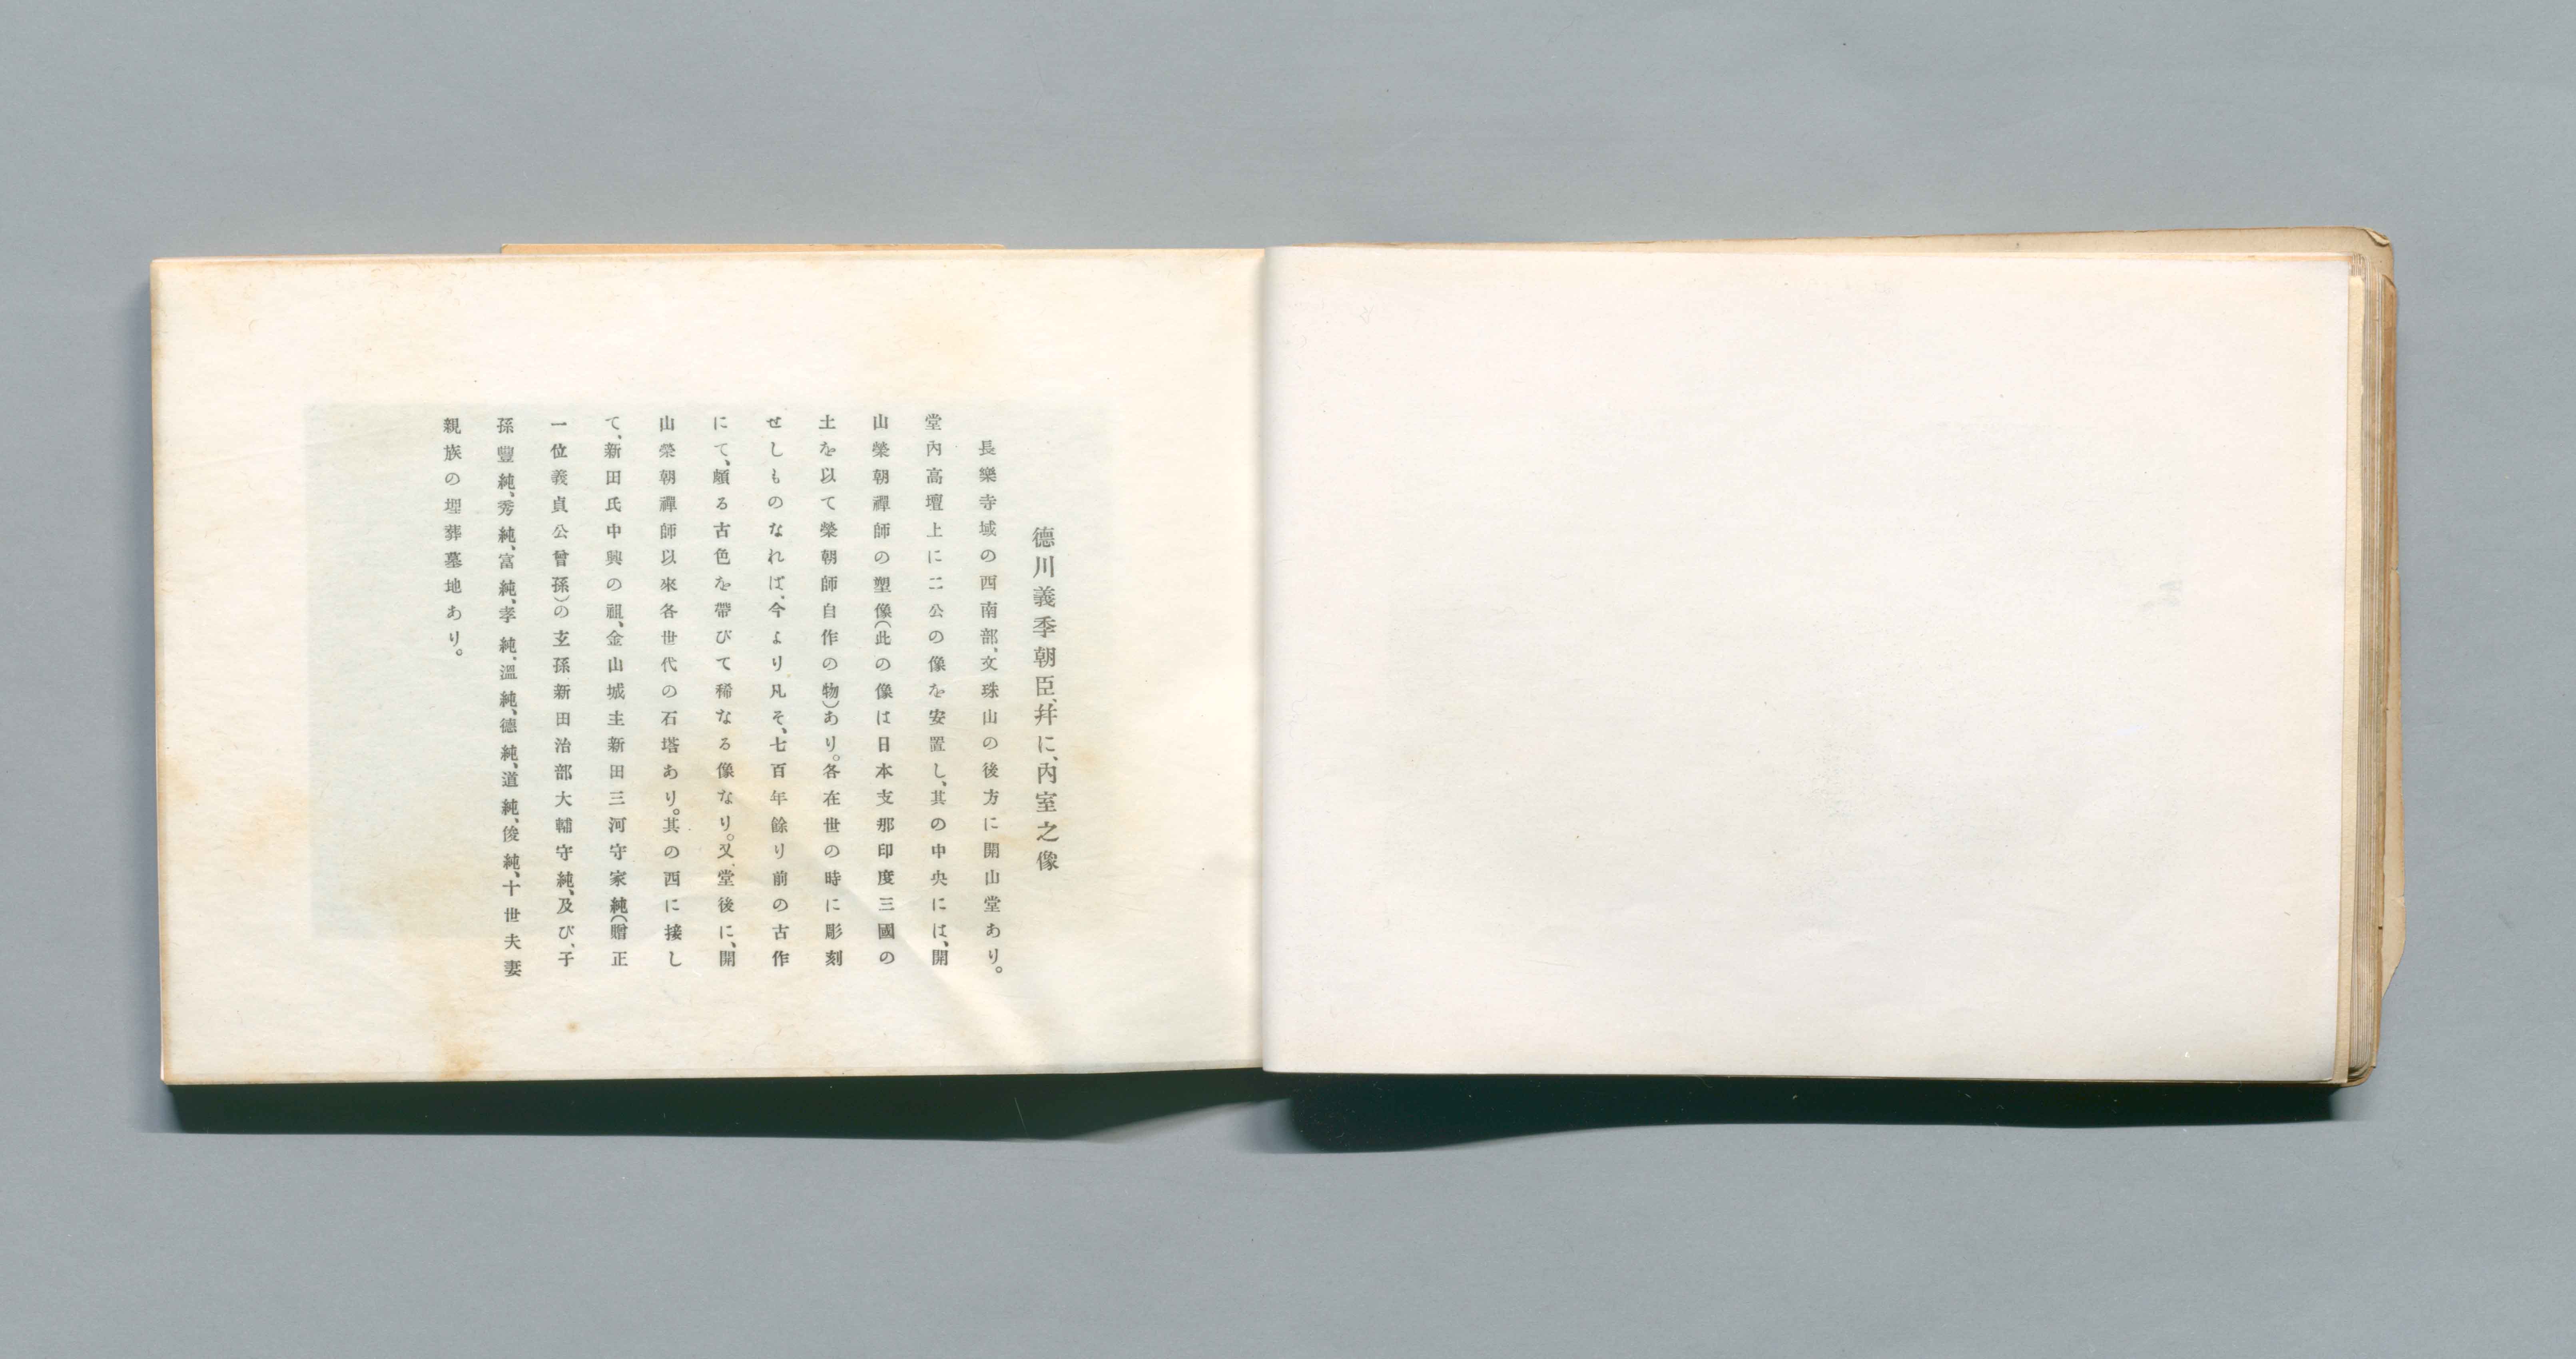 德川義季朝臣、幷に、內室之像
長樂寺域の西南部、文珠山の後方に開山堂あり。
堂內高壇上に二公の像を安置し、其の中央には、開
山榮朝禪師の塑像(此の像は日本支那印度三國の
土を以て榮朝師自作の物)あり。各在世の時に彫刻
せしものなれば、今より凡そ、七百年餘り前の古作
にて、頗る古色を帶びて稀なる像なり。又、堂後に、開
山榮朝禪師以來各世代の石塔あり。其の西に接し
て、新田氏中興の祖、金山城主新田三河守家純(贈正
一位義貞公曾孫)の玄孫新田治部大輔守純、及び、子
孫豐純、秀純、富純、孝純、溫純、德純、道純、俊純、十世夫妻
親族の埋葬墓地あり。